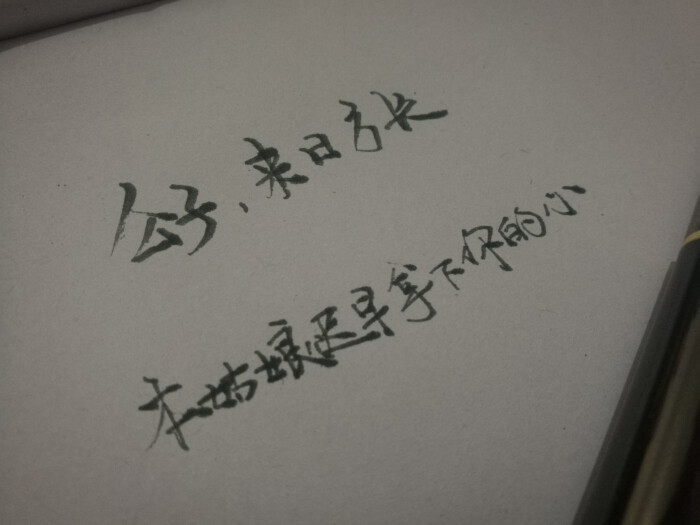 公子、来日方长
本姑娘迟早拿下你的小